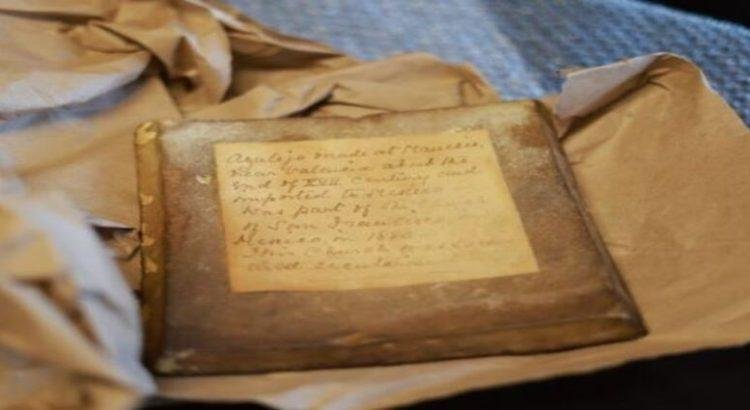 Azulejo made at Manises,
near Valencia about the
end of XVII Century and
imported to Mexico
was part of the
of San Francisco
Mexico, in 18
This Church